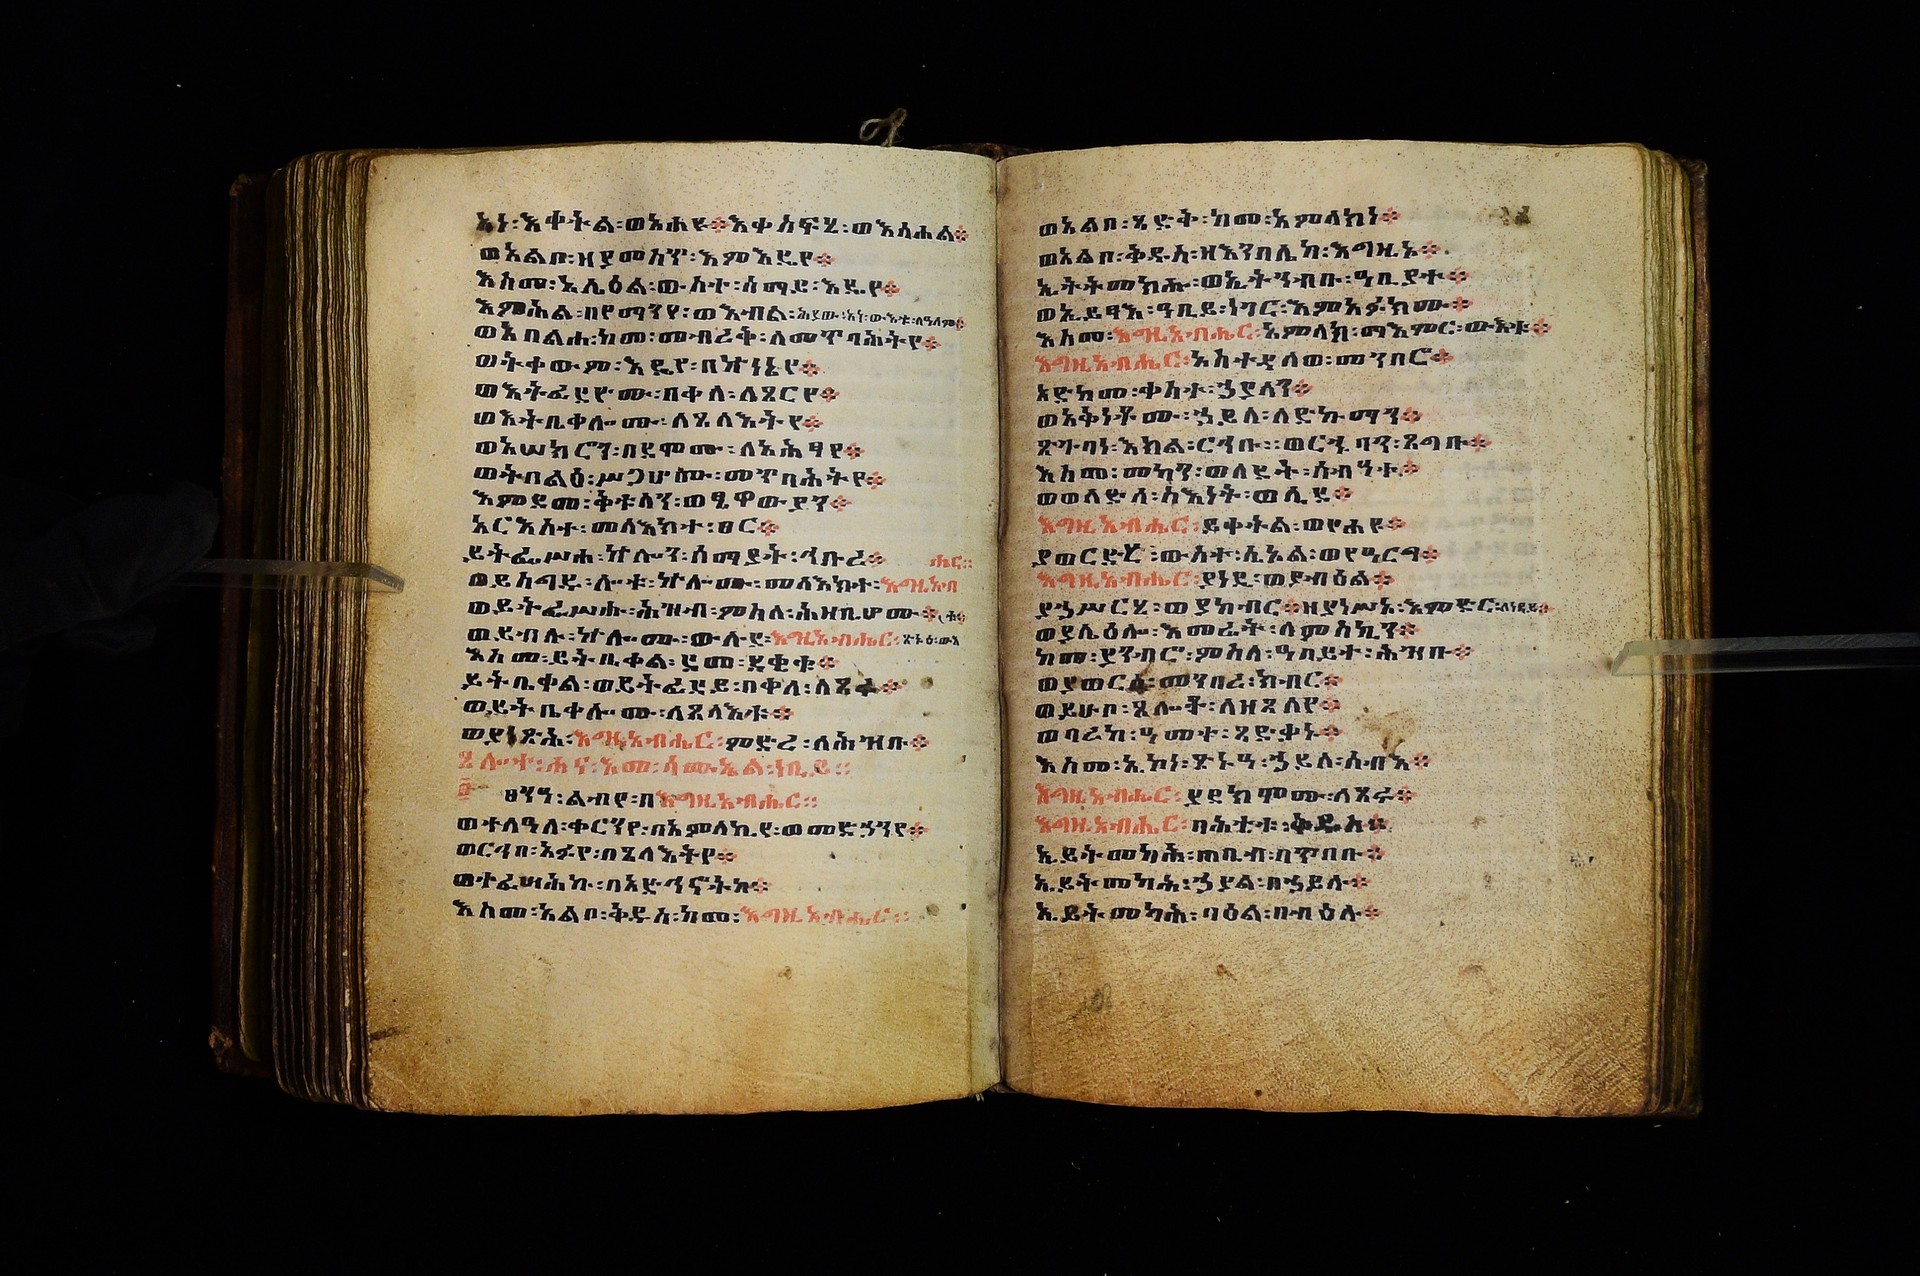 አነ፡እቀትል፡ወአሐዩ፨እቀስፍሂ፡ወእሣሀል፨
ወአልቦ፡ዘያመስጥ፡እምእዴየ፨
እስመ፡አሌዕል፡ውስተ፡ሰማይ፡እዴየ፨
እምሕል፡በየማንየ፡ወእብል፡ሕያው፡አነ፡ውእቱ፡ለዓለም፨
ወአበልሕ፡ከመ፡መብረቅ፡ለመጥባሕትየ፨
ወትቀውም፡እዴየ፡በኵነኔየ፨
ወእትፈደዮሙ፡በቀለ፡ለጸርየ፨
ወእትቤቀሎሙ፡ለጸላእትየ፨
ወአሠክርን፡በደሞሙ፡ለአሕፃየ፨
ወትበልዕ፡ሥጋሆሙ፡መጥባሕትየ፨
እምደመ፡ቅቱላን፡ወፄዋውያን፨
አርእስተ፡መላእክተ፡ፀር፨
ይትፌሥሑ፡ኵሎን፡ሰማያት፡ኅቡረ፨ ሔር፡፡
ወይሰግዱ፡ሎቱ፡ኵሎሙ፡መላእክተ፡እግዚአብ
ወይትፌሥሑ፡አሕዛብ፡ምስለ፡ሕዝቢሆሙ፨
ወይብሉ፡ኵሎሙ፡ውሉደ፡እግዚአብሔር፡ጽኑዕ፡ውእ
እስመ፡ይትቤቀል፡ደመ፡ደቂቁ፨
ይትቤቀል፡ወይትፈደይ፡በቀለ፡ለጸሩ፨
ወይትቤቀሎሙ፡ለጸላእቱ፨
ወያነጽሕ፡እግዚአብሔር፡ምድረ፡ለሕዝቡ፨
ጸሎተ፡ሐና፡እመ፡ሳሙኤል፡ነቢይ፡፡
ፀንዓ፡ልብየ፡በእግዚአብሔር፡፡
ወተለዓለ፡ቀርንየ፡በአምላኪየ፡ወመድኃንየ፨
ወርኅበ፡አፉየ፡በጸላእትየ፨
ወተፈሣሕኩ፡በአድኅኖትከ፨
እስመ፡አልቦ፡ቅዱስ፡ከመ፡እግዚአብሔር፡፡
ወአልቦ፡ጻድቅ፡ከመ፡አምላክነ፨
ወአልቦ፡ቅዱስ፡ዘእንበሌከ፡እግዚኦ፨
ኢትትመክሑ፡ወኢትንብቡ፡ዓቢያተ፨
ወኢይፃእ፡ዓቢይ፡ነገር፡እምአፉክሙ፨
እስመ፡እግዚአብሔር፡አምላክ፡ማእምር፡ውእቱ፨
እግዚአብሔር፡አስተዳለወ፡መንበሮ፨
አድከመ፡ቀስተ፡ኃያላን፨
ወአቅነቶሙ፡ኃይለ፡ለድኩማን፨
ጽጉባነ፡እክል፡ርኅቡ፡፡ወርኁባን፡ጸግቡ፨
እስመ፡መካን፡ወለደት፡ሰብዓተ፨
ወወላድሰ፡ስእነት፡ወሊደ፨
እግዚአብሔር፡ይቀትል፡ወየሐዩ፨
ያወርድሂ፡ውስተ፡ሲኦል፡ወየዓርግ፨
እግዚአብሔር፡ያነዲ፡ወያብዕል፨
ያኃሥርሂ፡ወያከብር፨ዘያነሥኦ፡እምድር፡ለነዳይ፨
ወያሌዕሎ፡እመሬት፡ለምስኪን፨
ከመ፡ያንብሮ፡ምስለ፡ዓበይተ፡ሕዝቡ፨
ወያወርሶ፡መንበረ፡ክብር፨
ወይሁቦ፡ጸሎቶ፡ለዘጸለየ፨
ወባረከ፡ዓመተ፡ጻድቃኑ፨
እስመ፡ኢኮነ፡ጽኑዓ፡ኃይለ፡ሰብእ፨
እግዚአብሔር፡ያደክሞሙ፡ለጸሩ፨
እግዚአብሔር፡ባሕቲቱ፡ቅዱስ፨
ኢይትመካሕ፡ጠቢብ፡በጥበቡ፨
ኢይትመካሕ፡ኃያል፡በኃይሉ፨
ኢይትመካሕ፡ባዕል፡በብዕሉ፨